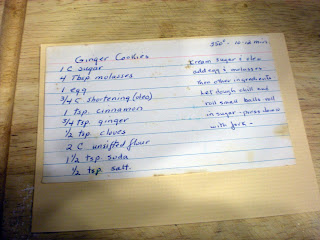 Ginger Cookies
1 C sugar
4 Tbsp molasses
1 egg
3/4 C shortening (oleo)
1 tsp. cinnamon
3/4 tsp. ginger
1/2 tsp cloves
2 C unsifted flour
1 1/2 tsp soda
1/2 tsp. salt.
350° - 10-12 mins.
Cream sugar & oleo
add egg & molasses
then other ingredients
Let dough chill and
roll small balls roll
in sugar - press down
with fork -